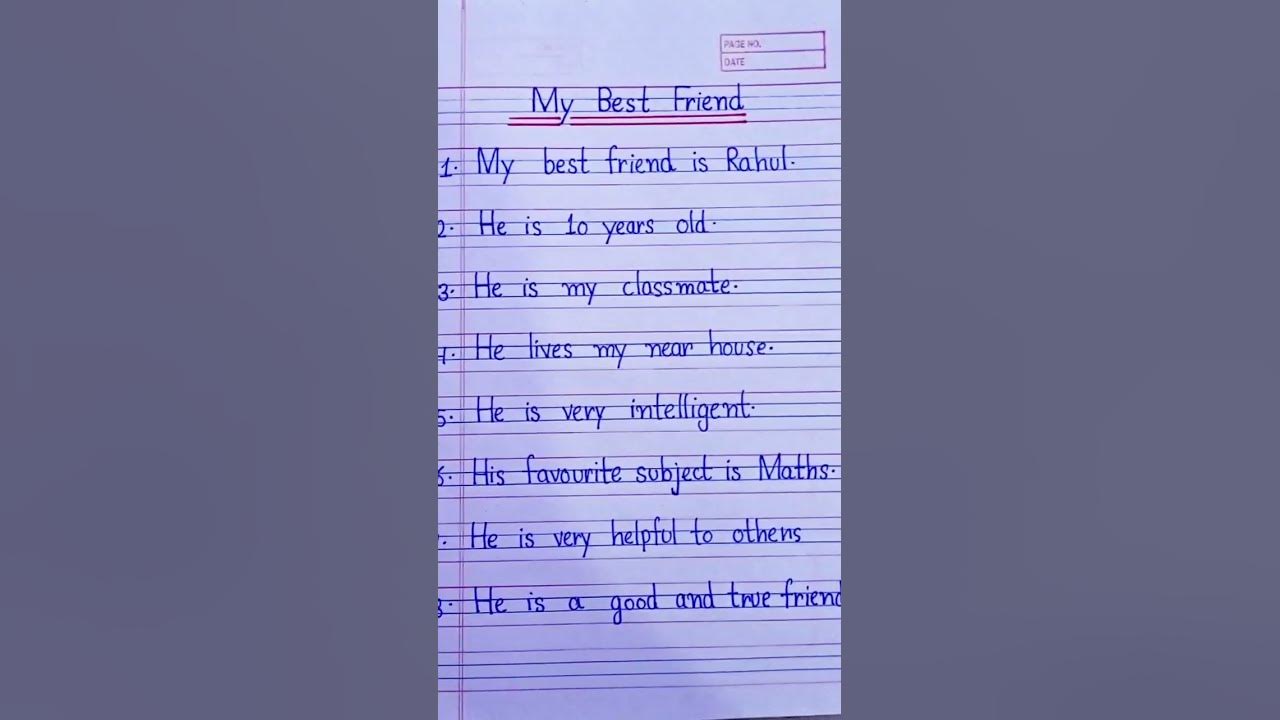 PAGE NO.
DATE
My Best Friend
1. My best friend is Rahul.
2. He is 10 years old.
3. He is my classmate.
4. He lives my near house.
5. He is very intelligent.
6. His favourite subject is Maths.
. He is very helpful to others
8. He is a good and true friend